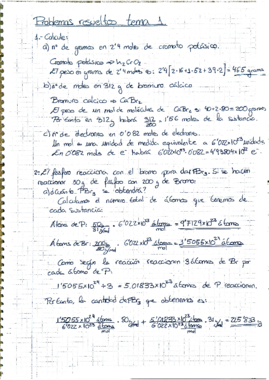 Problemas resueltos tema 1
1.- Calcule:
a) nº de gramos en 2'4 moles de cromato potásico.
Cromato potásico ⇒ K₂CrO₄.
El peso en gramos de 2'4 moles es: 2'4[2·6+1·52+39·2] = 465 gramos
b) nº de moles en 312 g de bromuro cálcico
Bromuro cálcico → CaBr₂
El peso de un mol de moléculas de CaBr₂ = 40+2·80 = 200 gramos
Por tanto en 312g habrá 312/200 = 1'56 moles de la sustancia.
c) nº de electrones en 0'082 moles de electrones.
Un mol = una unidad de medida equivalente a 6'022·10²³ unidades
En 0'082 moles de e⁻ habrá 6'022·10²³·0'082 = 4'93804·10²² e⁻.
2.- El fósforo reacciona con el bromo para dar PBr₃. Si se hacen
reaccionar 50g de fósforo con 200 g de Bromo:
a) ¿cuánto PBr₃ se obtendrá?
Calculamos el número total de átomos que tenemos de
cada sustancia:
Átomos de P: 50g / 31 g/mol · 6'022·10²³ átomos/mol = 9'7129·10²³ átomos
Átomos de Br: 200g / 80 g/mol · 6'022·10²³ átomos/mol = 1'5055·10²⁴ átomos
Como según la reacción reaccionan 3 átomos de Br por
cada átomo de P:
1'5055·10²⁴ ÷ 3 = 5'01833·10²³ átomos de P reaccionan.
Por tanto, la cantidad de PBr₃ que obtenemos es:
1'5055·10²⁴ átomos / 6'022·10²³ átomos/mol · 80 g/mol + 5'01833·10²³ átomos / 6'022·10²³ átomos/mol · 31 g/mol = 225'833 g